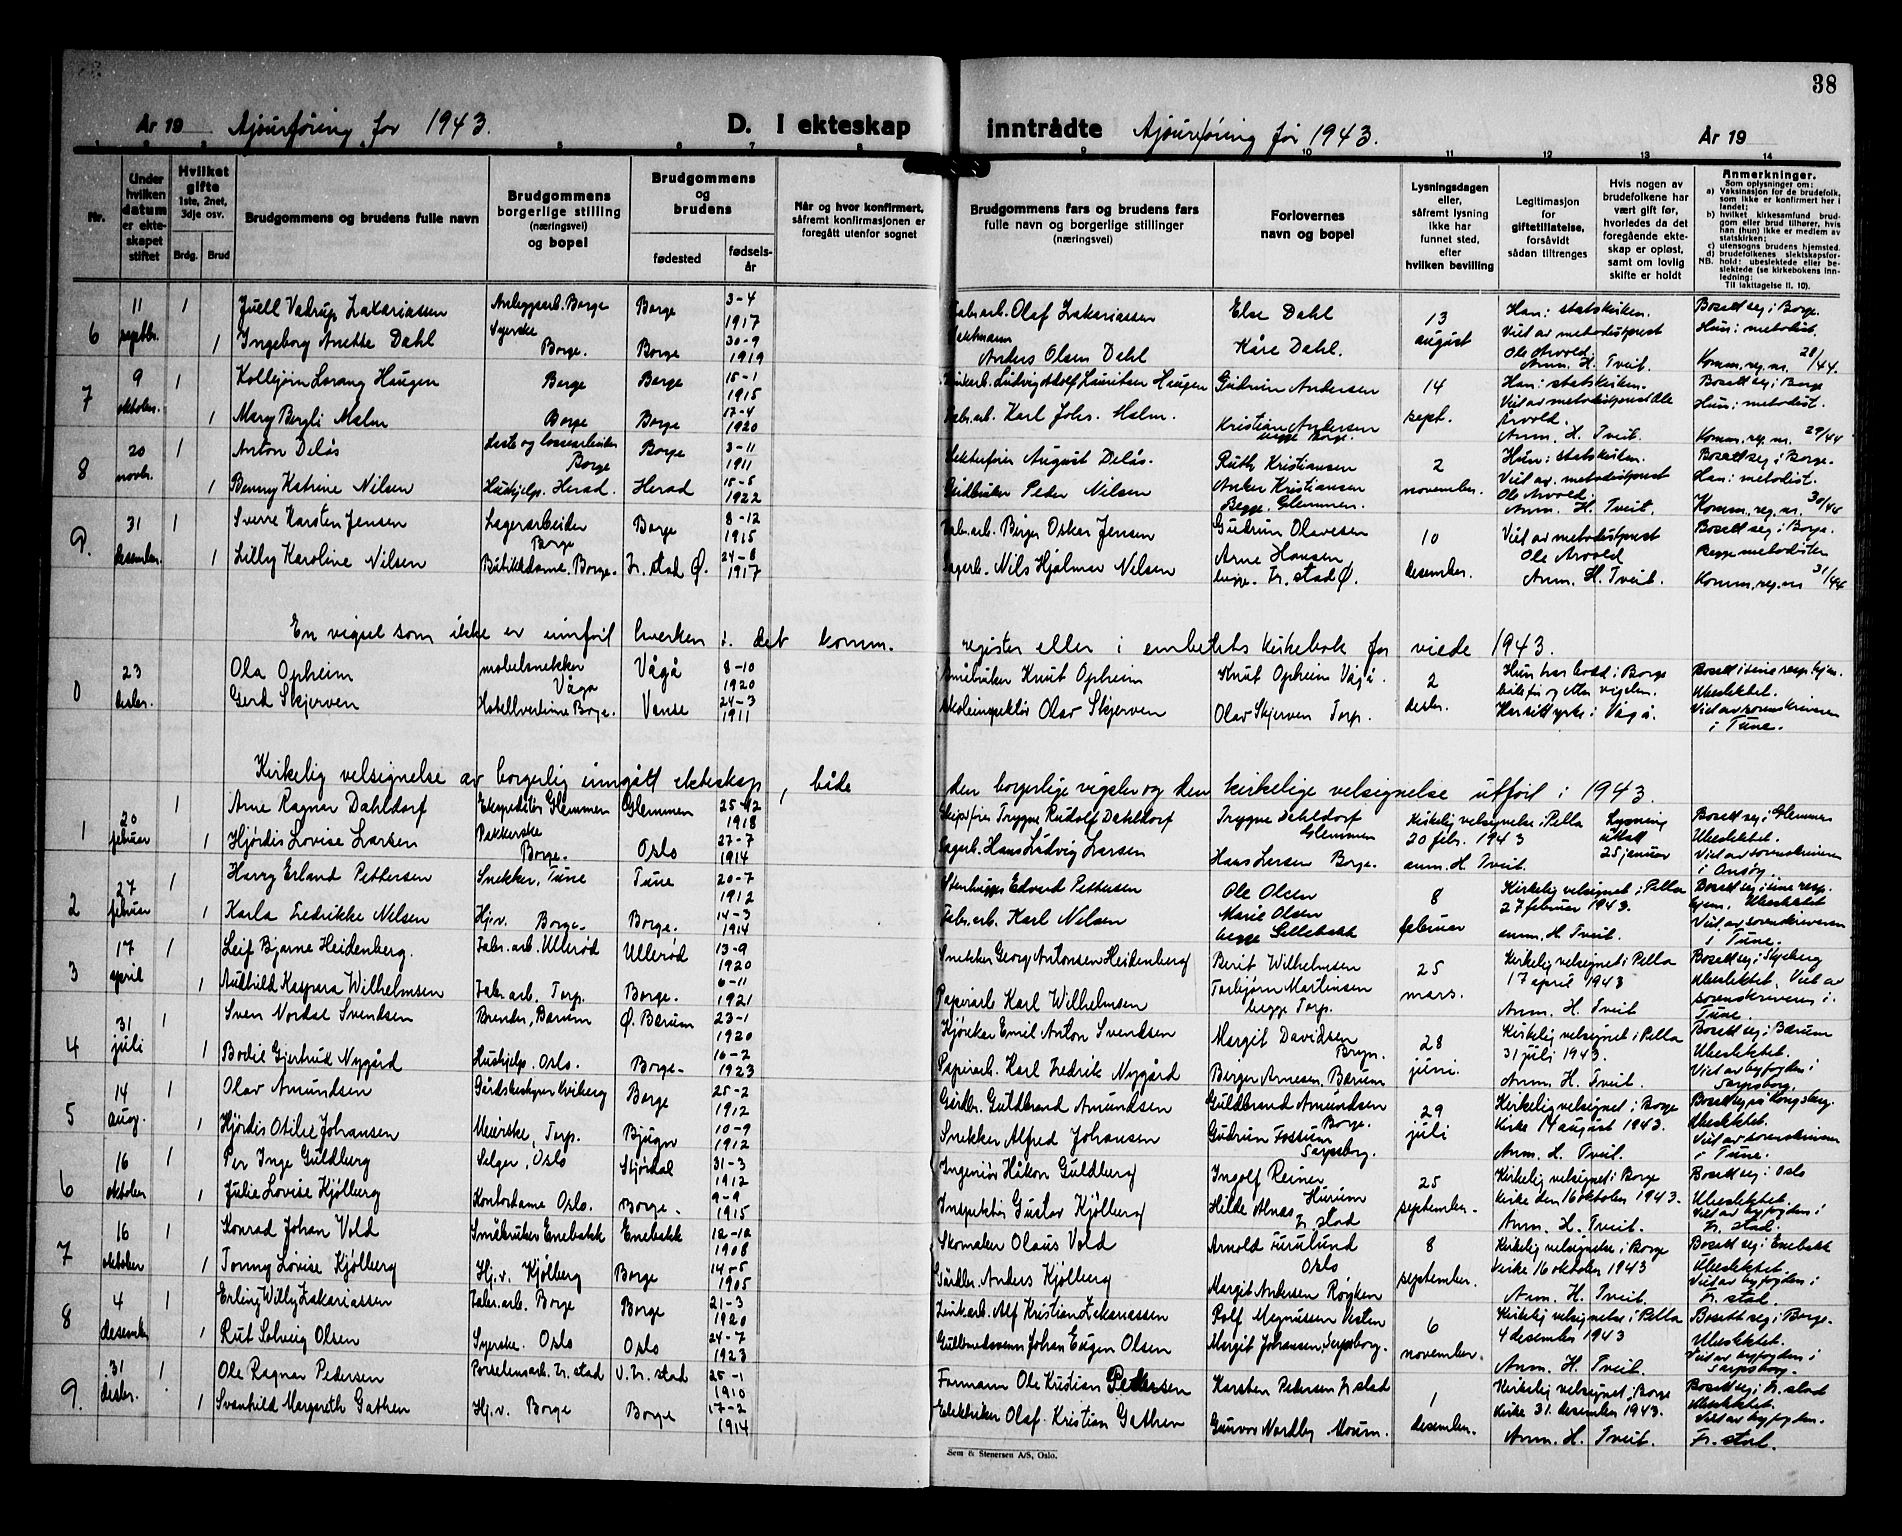 38
År 19 Ajourføring for 1943. D. I ekteskap inntrådte Ajourføring for 1943. År 19
1 2 3 4 5 6 7 8 9 10 11 12 13 14
Nr.
Under hvilken datum er ekteskapet stiftet
Hvilket gifte 1ste, 2net, 3dje osv.
Brdg. Brud
Brudgommens og brudens fulle navn
Brudgommens borgerlige stilling (næringsvei) og bopel
Brudgommens og brudens
fødested
fødsels-år
Når og hvor konfirmert, såfremt konfirmasjonen er foregått utenfor sognet
Brudgommens fars og brudens fars fulle navn og borgerlige stillinger (næringsvei)
Forlovernes navn og bopel
Lysningsdagen eller, såfremt lysning ikke har funnet sted, efter hvilken bevilling
Legitimasjon for giftetillatelse, forsåvidt sådan tiltrenges
Hvis nogen av brudefolkene har vært gift før, hvorledes da det foregående ekteskap er opløst, samt om lovlig skifte er holdt
Anmerkninger.
Som oplysninger om:
a) Vaksinasjon for de brudefolk, som ikke er konfirmert her i landet;
b) hvilket kirkesamfund brudgom eller brud tilhører, hvis han (hun) ikke er medlem av statskirken;
c) utensogns brudens hjemsted.
d) brudefolkenes slektskapsforhold: ubeslektede eller beslektede (se kirkebokens innledning:
NB.
Til iakttagelse II, 10).
6 11 septbr. 1 Juell Vadrup Zakariassen Anleggsarb. Borge Borge 3-4 1917 Fabr.arb. Olaf Zakariassen Else Dahl 13 august Han: statskirken. Bosett sej i Borge.
1 Ingeborg Anette Dahl Syerske Borge. Borge 30-9 1919 Anders Olsen Dahl Kåre Dahl. Viet av metodistprest Ole Arvold. Anm. H. Tveit. Hun: metodist. Komm.reg.nr. 28/44.
7 9 oktober. 1 Kolbjørn Lorang Haugen Borge Borge 15-1 1915 Ludvig Adolf Lauritsen Haugen Gudrun Andersen 14 sept. Han: statskirken. Bosett sej i Borge
1 Mary Bergli Malm Borge Borge 17-4 1920 Fabr.arb. Karl Johs. Malm. Kristian Andersen begge Borge. Viet av metodistprest Ole Arvold. Anm. H. Tveit. Hun: metodist. Komm.reg.nr. 29/44
8 20 novbr. 1 Anton Delås Laste og lossearbeider Borge Borge 3-11 1911 August Delås. Ruth Kristiansen 2 november. Hun: statskirken. Bosett sej i Borge.
1 Benny Katrine Nilsen Hushjelp. Herad. Herad 15-5 1922 Gårdbruker Peder Nilsen Anker Kristiansen Begge Glemmen. Viet av metodistprest Ole Arvold. Anm. H. Tveit. Han: metodist. Komm.reg.nr. 30/44
9. 31 desember 1 Sverre Karsten Jensen Lagerarbeider Borge Borge 8-12 1915 Fabr.arb. Birger Oskar Jensen Gudrun Olavesen 10 desember. Viet av metodistprest Ole Arvold Bosett sej i Borge.
1 Lilly Karoline Nilsen Butikkdame. Borge. Fr.stad Ø. 24-8 1917 Lagerb. Nils Hjalmar Nilsen Arne Hansen begge Fr.stad Ø. Anm. H. Tveit. Begge metodister Komm.reg.nr 31/44
En vigsel som ikke er innført hverken i det komm. register eller i embetets kirkebok for viede 1943.
0 23 desbr. Ola Opheim møbelsnekker Vågå Vågå 8-10 1920 Småbruker Knut Opheim Knut Opheim Vågå. 2 desbr. Hun har bodd i Borge både før og etter vigslen.
Gerd Skjerven Hotellvertinne Borge. Vanse 24-3 1911 Skoleinspektør Olav Skjerven Olav Skjerven Torp. Har sitt yrke i Vågå. Ubeslektet. Viet av sorenskriveren i Tune.
Kirkelig velsignelse av borgerlig inngått ekteskap, både den borgerlige vigsler og den kirkelige velsignelse utført i 1943.
1 20 februar 1 Arne Ragnar Dahldorf Ekspeditør Glemmen Glemmen 25-12 1918 Trygve Rudolf Dahldorf Trygve Dahldorf Glemmen Kirkelig velsignelse i Pella 20 febr. 1943 anm. H. Tveit. Lysning utsatt 25 januar Bosett sej i Glemmen
1 Hjørdis Lovise Larsen Pakkerske Borge. Oslo 27-7 1914 Lagerb. Hans Ludvig Larsen Hans Larsen Borge. Ubeslektet. Viet av sorenskriveren i Onsøy.
2 27 februar 1 Harry Erland Pettersen Snekker, Tune Tune 20-7 1912 Stenhugger Edvard Pettersen Ole Olsen 8 februar Kirkelig velsignet i Pella 27 februar 1943. Bosett sej i sine resp. hjem. Ubeslektet
1 Karla Fredrikke Nilsen Hj.v. Borge. Borge. 14-3 1914 Fabr.arb. Karl Nilsen Marie Olsen begge Sellebakk anm. H. Tveit. Viet av sorenskriveren i Tune.
3 17 april 1 Leif Bjarne Heidenberg. Fabr.arb. Ullerød Ullerød 13-9 1920 Snekker Georg Antonsen Heidenberg Berit Wilhelmsen 25 mars. Kirkelig velsignet i Pella 17 april 1943 Bosett sej i Skjeberg
1 Audhild Kaspara Wilhelmsen Fabr.arb. Torp. Borge. 6-11 1921 Papirarb Karl Wilhelmsen Torbjørn Martinsen begge Torp. Anm. H. Tveit Ubeslektet. Viet av sorenskriveren i Tune.
4 31 juli 1 Sven Nordal Svendsen Brenner, Bærum Ø. Bærum 23-1 1920 Kjøreker Emil Anton Svendsen Margit Davidsen 28 juni. Kirkelig velsignet i Pella 31 juli 1943. Bosett sej i Bærum
1 Bodil Gjertrud Nygård Hushjelp. Oslo. Borge. 16-2 1923 Papirarb. Karl Fredrik Nygård Berger Arnesen. Bærum Anm. H. Tveit. Ubeslektet. Viet av byfogden i Sarpsborg.
5 14 aug. 1 Olav Amundsen Borge 25-2 1912 Gårdbr. Guldbrand Amundsen Guldbrand Amundsen Borge. 29 juli Kirkelig velsignet i Borge kirke 14 august 1943. Bosett sej på Kongsberg.
1 Hjørdis Otilie Johansen Meierske, Torp. Bjugn 10-9 1912 Snekker Alfred Johansen Gudrun Fossum Sarpsborg. Anm. H. Tveit. Ubeslektet Viet av sorenskriveren i Tune.
6 16 oktober 1 Per Inge Guldberg Selger, Oslo Stjørdal 31-3 1912 Ingeniør Håkon Guldberg Ingolf Reiner Hurum 25 september. Kirkelig velsignet i Borge kirke den 16 oktober 1943. Bosett sej i Oslo
1 Julie Lovise Kjølberg Kontordame Oslo. Borge. 9-9 1915 Inspektør Gustav Kjølberg Hilde Alnæs Fr.stad Anm. H. Tveit. Ubeslektet. Viet av byfogden i Fr.stad.
7 16 oktober 1 Konrad Johan Vold Småbruker Enebakk Enebakk 12-12 1908 Skomaker Olaus Vold Arnold Furulund Oslo 8 september. Kirkelig velsignelse i Borge kirke 16 oktober 1943 Bosett sej i Enebakk
1 Tonny Lovise Kjølberg Hj.v. Kjølberg Borge 14-5 1905 Gårdbr. Anders Kjølberg Margit Andersen Røyken Anm. H. Tveit. Ubeslektet. Viet av byfogden i Fr.stad.
8 4 desember 1 Erling Willy Zakariassen Fabr.arb. Borge Borge 21-3 1920 Alf Kristian Zakariassen Rolf Magnussen 6 november. Kirkelig velsignelse i Pella 4 desember 1943 Bosett sej i Borge.
1 Rut Solveig Olsen Syerske. Oslo Oslo 24-7 1923 Gullsmedsvenn Johan Eugen Olsen Margit Johansen, Sarpsborg. Anm. H. Tveit. Ubeslektet. Viet av byfogden i Sarpsborg.
9. 31 desbr. 1 Ole Ragnar Pedersen Porselensarb. Fr.stad V. Fr.stad 25-1 1910 Formann Ole Kristian Pedersen Karsten Pedersen Fr.stad 1 desember. Kirkelig velsignet i Borge kirke 31. desember 1943. Bosett sej i Fr.stad
1 Svanhild Margareth Gathen Hj.v. Borge Borge 17-2 1914 Elektriker Olaf Kristian Gathen Gunvor Nordby Moum. Anm. H. Tveit. Ubeslektet. Viet av byfogden. Fr.stad.
Sem & Stenersen A/S, Oslo.